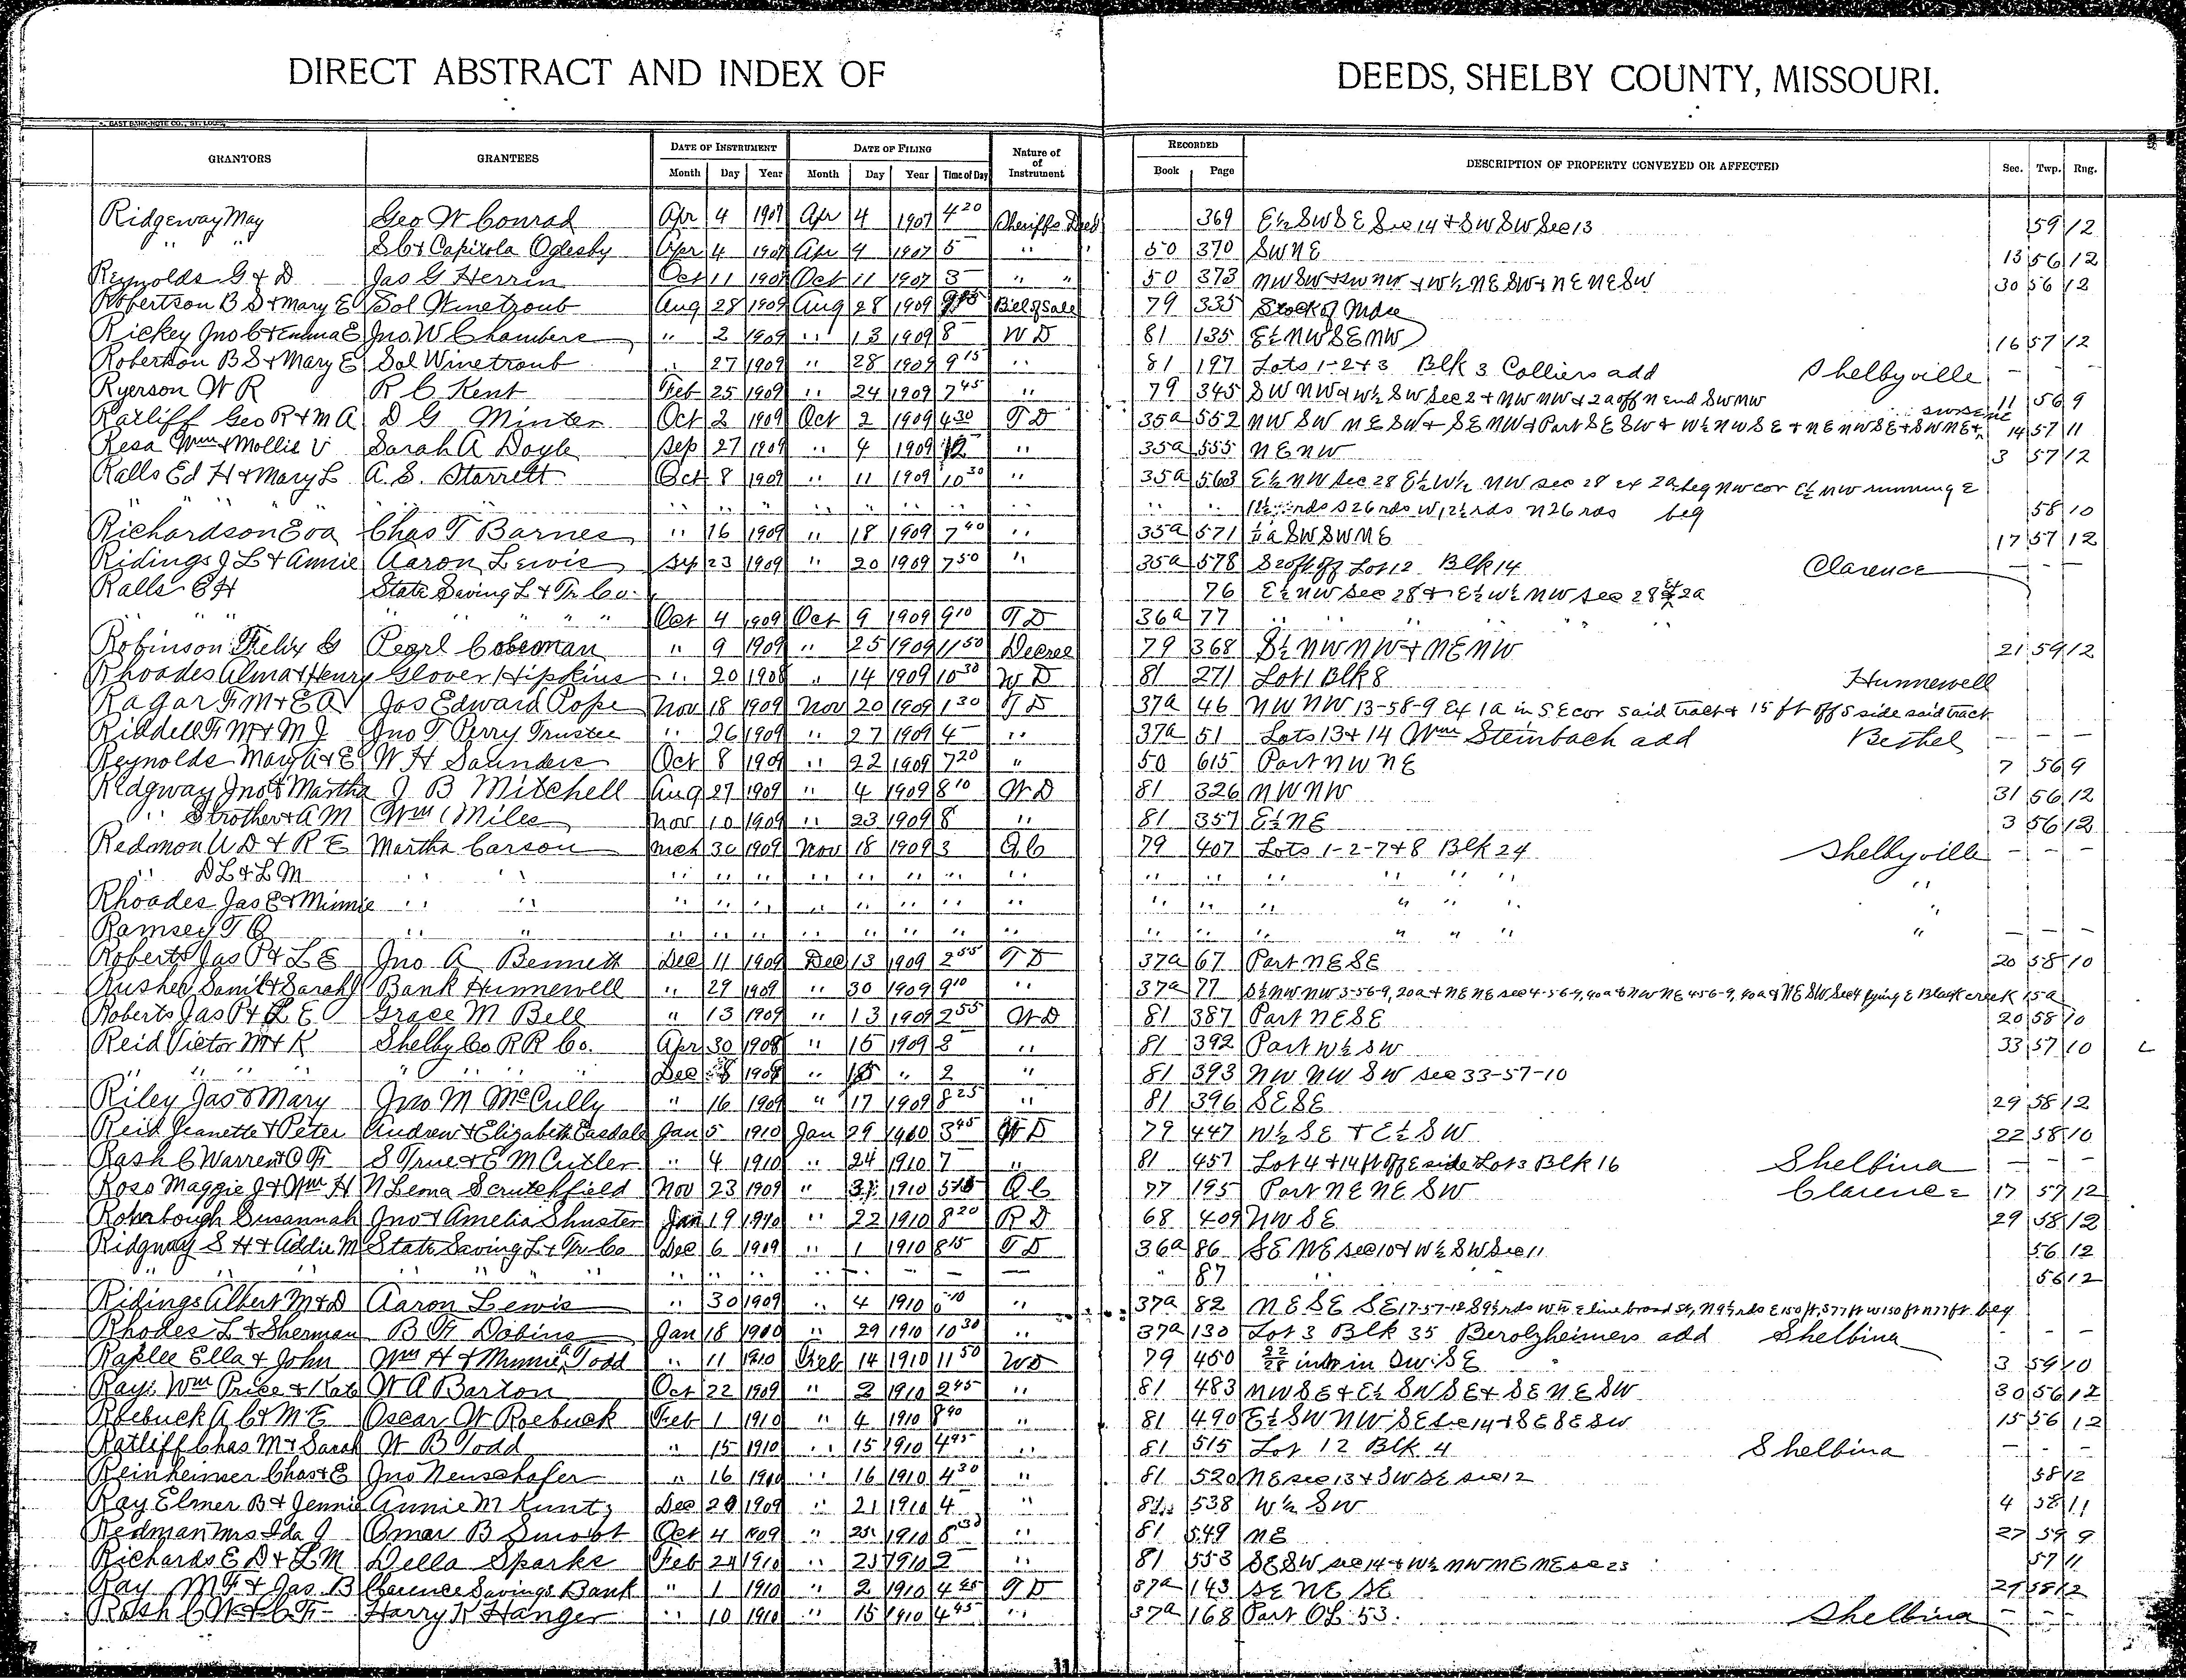 DIRECT ABSTRACT AND INDEX OF DEEDS, SHELBY COUNTY, MISSOURI.
GRANTORS GRANTEES DATE OF INSTRUMENT DATE OF FILING Nature of of Instrument RECORDED DESCRIPTION OF PROPERTY CONVEYED OR AFFECTED Sec. Twp. Rng.
Month Day Year Month Day Year Time of Day Book Page
Ridgeway May Geo W Conrad Apr 4 1907 Apr 4 1907 4 20 Sheriffs Deed 369 E½ SW SE Sec 14 & SW SW Sec 13 59 12
" " S C & Capitola Oglesby Apr 4 1907 Apr 9 1907 5 " " 50 370 SW NE 13 56 12
Reynolds G & D Jas G Herrin Oct 11 1907 Oct 11 1907 3 " " 50 373 NW SW & SW NW & W½ NE SW & NE NE SW 30 56 12
Robertson B S & Mary E Sol Winetroub Aug 28 1909 Aug 28 1909 9 15 Bill of Sale 79 335 Stock of Mdse
Rickey Jno C & Emma E Jno. W Chambers " 2 1909 " 13 1909 8 W D 81 135 E½ NW SE NW 16 57 12
Robertson B S & Mary E Sol Winetroub " 27 1909 " 28 1909 9 15 " 81 197 Lots 1-2 & 3 Blk 3 Colliers add Shelbyville - - -
Ryerson W R R C Kent Feb 25 1909 " 24 1909 7 45 " 79 345 SW NW & W½ SW Sec 2 & NW NW & 2a off N end SW NW 11 56 9
Ratliff Geo R & M A D G Minter Oct 2 1909 Oct 2 1909 4 30 T D 35a 552 NW SW NE SW & SE NW & Part SE SW & W½ NW SE & NE NW SE & SW NE & SW SE NE 14 57 11
Resa Wm & Mollie V Sarah A Doyle Sep 27 1909 " 4 1909 12 " 35a 555 NE NW 3 57 12
Ralls Ed H & Mary L A. S. Starrett Oct 8 1909 " 11 1909 10 30 " 35a 563 E½ NW Sec 28 E½ W½ NW sec 28 ex 2a beg NW cor E½ NW running E
" " " " " " " " " " " " " rds S 26 rds W 12½ rds N 26 rds beg 58 10
Richardson Eva Chas T Barnes " 16 1909 " 18 1909 7 40 " 35a 571 a SW SW NE 17 57 12
Ridings J L & Annie Aaron Lewis Sep 23 1909 " 20 1909 7 50 " 35a 578 S 20 ft off Lot 12 Blk 14 Clarence
Ralls E H State Saving L & Tr Co. 76 E½ NW Sec 28 & E½ W½ NW Sec 28 Ex 2a
" " " " " " Oct 4 1909 Oct 9 1909 9 10 T D 36a 77 " " " " "
Robinson Felix G Pearl Coleman " 9 1909 " 25 1909 11 50 Decree 79 368 S½ NW NW & NE NW 21 59 12
Rhoades Alma & Henry Glover Hipkins " 20 1908 " 14 1909 10 30 W D 81 271 Lot 1 Blk 8 Hunnewell
Ragar F M & E A Jas Edward Pope Nov 18 1909 Nov 20 1909 1 30 T D 37a 46 NW NW 13-58-9 Ex 1a in SE cor said tract & 15 ft off S side said tract
Riddell F M & M J Jno T Perry Trustee " 26 1909 " 27 1909 4 " 37a 51 Lots 13 & 14 Wm Steinbach add Bethel - - -
Reynolds Mary A & E W H Saunders Oct 8 1909 " 22 1909 7 20 " 50 615 Part NW NE 7 56 9
Ridgway Jno & Martha J B Mitchell Aug 27 1909 " 4 1909 8 10 W D 81 326 NW NW 31 56 12
" Strother & A M Wm Miles Nov 10 1909 " 23 1909 8 " 81 357 E½ NE 3 56 12
Redmon W D & R E Martha Carson Mch 30 1909 Nov 18 1909 3 Q C 79 407 Lots 1-2-7 & 8 Blk 24 Shelbyville - - -
" D L & L M " " " " " " " " " " " " " " " " "
Rhoades Jas E & Minnie " " " " " " " " " " " " " " " " "
Ramsey T " " " " " " " " " " " " " " " " " - - -
Roberts Jas P & L E Jno A Bennett Dec 11 1909 Dec 13 1909 2 55 T D 37a 67 Part NE SE 20 58 10
Rusher Saml & Sarah J Bank Hunnewell " 29 1909 " 30 1909 9 10 " 37a 77 S½ NW NW 3-56-9, 20a & NE NE sec 4-56-9, 40a & NW NE 4 56-9, 40a & NE SW Sec 4 lying E Black creek 15a
Roberts Jas P & L E Grace M Bell " 13 1909 " 13 1909 2 55 W D 81 387 Part NE SE 20 58 10
Reid Victor M & K Shelby Co RR Co. Apr 30 1908 " 15 1909 2 " 81 392 Part W½ SW 33 57 10
" " " " " " " Dec 8 1908 " 15 " 2 " 81 393 NW NW SW sec 33-57-10
Riley Jas & Mary Jno M McCully " 16 1909 " 17 1909 8 25 " 81 396 SE SE 29 58 12
Reid Jeanette & Peter Andrew & Elizabeth Easdale Jan 5 1910 Jan 29 1910 3 45 W D 79 447 W½ SE & E½ SW 22 58 10
Rash C Warren & O F S True & E M Cutler " 4 1910 " 24 1910 7 " 81 457 Lot 4 & 14 ft off E side Lot 3 Blk 16 Shelbina - - -
Ross Maggie J & Wm H N Lema Scrutchfield Nov 23 1909 " 31 1910 5 15 Q C 77 195 Part NE NE SW Clarence 17 57 12
Rohrbough Susannah Jno & Amelia Shuster Jan 19 1910 " 22 1910 8 20 R D 68 409 NW SE 29 58 12
Ridgway S H & Addie M State Saving L & Tr Co Dec 6 1909 " 1 1910 8 15 T D 36a 86 SE NE sec 10 & W½ SW Sec 11 56 12
" " " " " " " " " " - - - " 87 " " 56 12
Ridings Albert M & D Aaron Lewis " 30 1909 " 4 1910 10 " 37a 82 NE SE SE 17-57-12 S 9½ rds W E line broad St, N 9½ rds E 150 ft, S 77 ft W 150 ft N 77 ft beg
Rhodes L & Sherman B F Dobins Jan 18 1910 " 29 1910 10 30 " 37a 130 Lot 3 Blk 35 Berolzheimers add Shelbina - -
Raplee Ella & John Wm H & Minnie A Todd " 11 1910 Feb 14 1910 11 50 W D 79 450 22/28 int in SW SE 3 59 10
Ray Wm Price & Kate W A Barton Oct 22 1909 " 2 1910 2 45 " 81 483 NW SE & E½ SW SE & SE NE SW 30 56 12
Roebuck A C & M E Oscar W Roebuck Feb 1 1910 " 4 1910 8 40 " 81 490 E½ SW NW SE Sec 14 & SE SE SW 15 56 12
Ratliff Chas M & Sarah W B Todd " 15 1910 " 15 1910 4 45 " 81 515 Lot 12 Blk 4 Shelbina - - -
Reinheimer Chas & E Jno Neuschafer " 16 1910 " 16 1910 4 30 " 81 520 NE sec 13 & SW SE sec 12 58 12
Ray Elmer B & Jennie Annie M Kuntz Dec 20 1909 " 21 1910 4 " 81 538 W½ SW 4 58 11
Redman Mrs Ida J Omar B Smoot Oct 4 1909 " 25 1910 8 30 " 81 549 NE 27 59 9
Richards E D & L M Della Sparks Feb 24 1910 " 25 1910 2 " 81 553 SE SW sec 14 & W½ NW NE NE sec 23 57 11
Ray M F & Jas B Clarence Savings Bank " 1 1910 " 2 1910 4 25 T D 37a 143 SE NE SE 27 58 12
Rash C W & C F Harry K Hanger " 10 1910 " 15 1910 4 45 " 37a 168 Part OL 53. Shelbina - - -
11